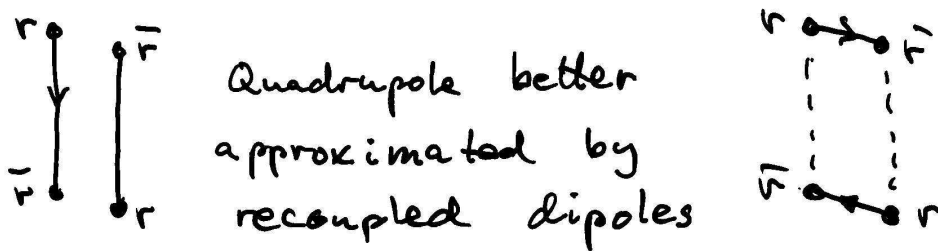 r r̄ r r̄
Quadrupole better
approximated by
r̄ r recoupled dipoles r̄ r